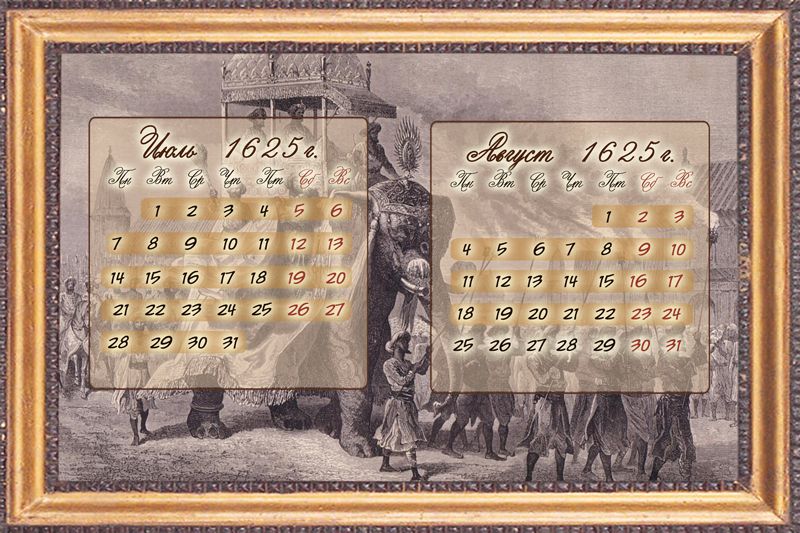 Июль 1625г.
Пн Вт Ср Чт Пт Сб Вс
1 2 3 4 5 6
7 8 9 10 11 12 13
14 15 16 17 18 19 20
21 22 23 24 25 26 27
28 29 30 31
Август 1625г.
Пн Вт Ср Чт Пт Сб Вс
1 2 3
4 5 6 7 8 9 10
11 12 13 14 15 16 17
18 19 20 21 22 23 24
25 26 27 28 29 30 31